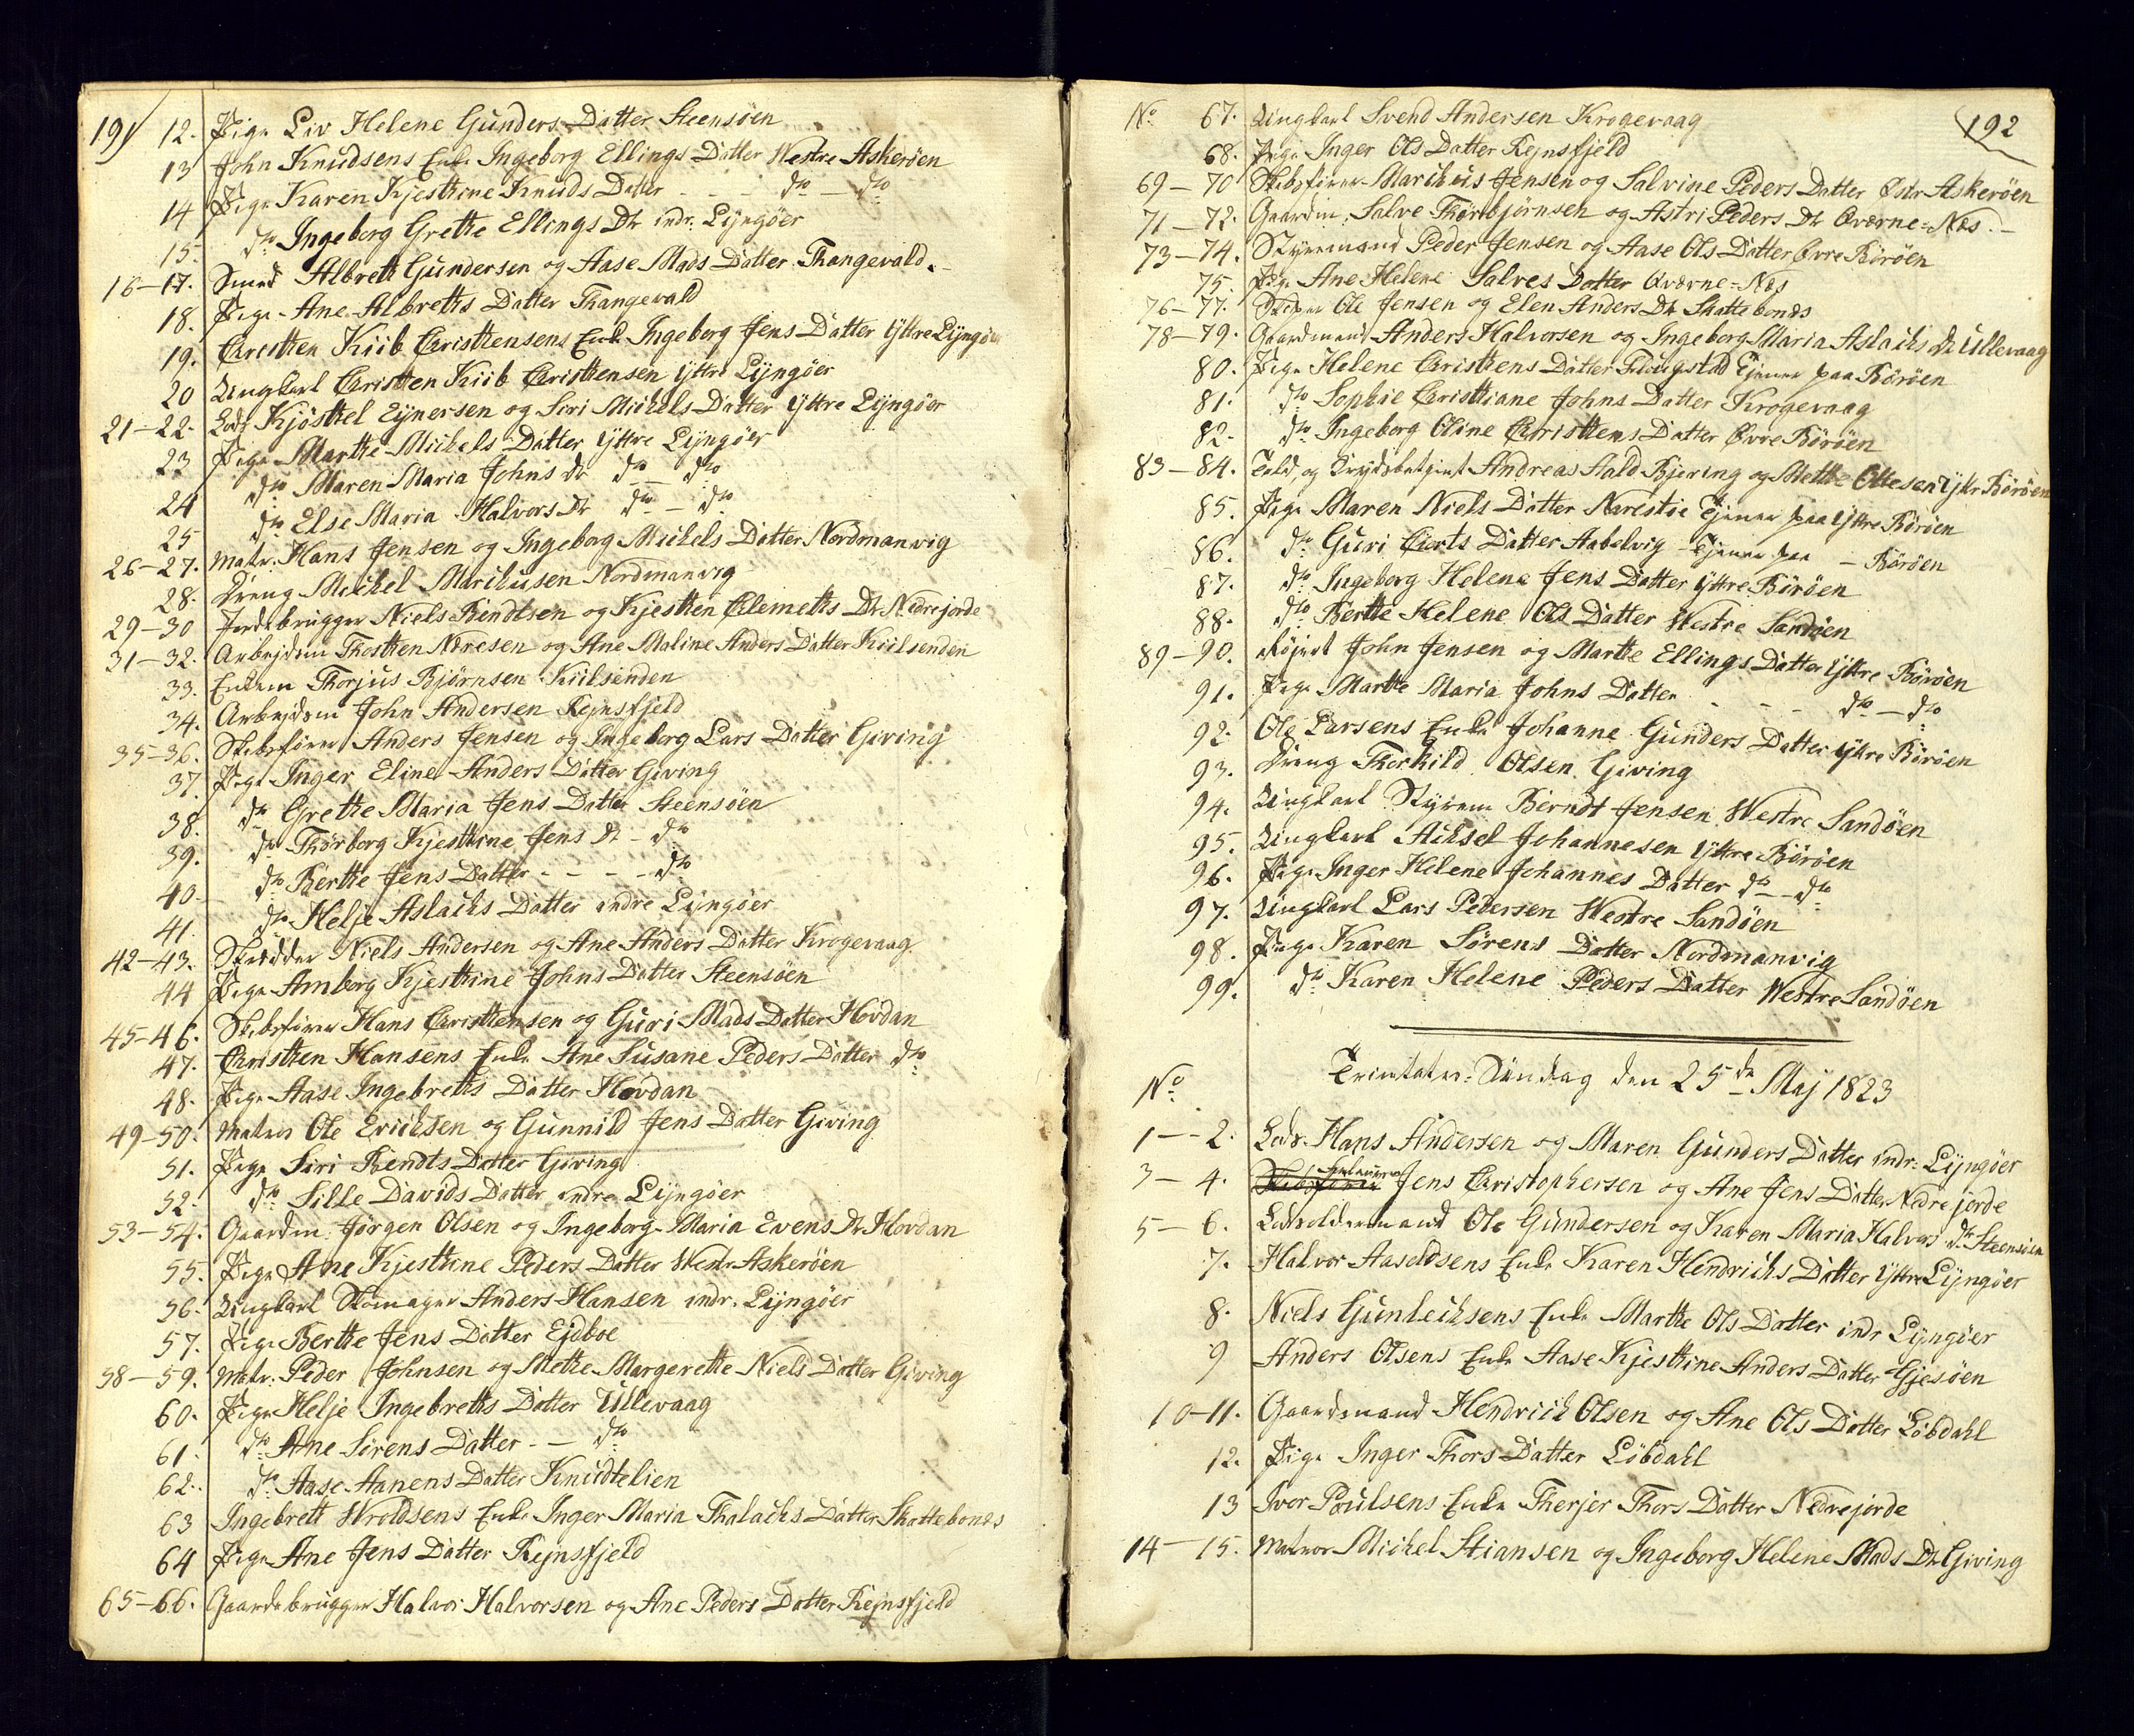 191
12. Pige Liv Helene Gunders Datter Steensöen
13 John Knudsens Enke Ingeborg Ellings Datter Westre Askeröen
14 Pige Karen Kjesthine Knuds Datter - - - dto - dto
15. dto Ingeborg Grethe Ellings Dtr indr: Lyngöer
16-17. Smed Albreth Gundersen og Aase Mads Datter Thangevald.
18. Pige Ane Albreths Datter Thangevald
19. Christhen Kiib Christhensens Enke Ingeborg Jens Datter Yttre Lyngöer
20 Ungkarl Christhen Kiib Christhensen Yttre Lyngöer
21-22. Lods Kjösthel Eynersen og Siri Michels Datter Yttre Lyngöer
23 Pige Marthe Michels Datter Yttre Lyngöer
24 dto Maren Maria Johns Dr dto - dto
25 dto Else Maria Halvors Dr dto - dto
26-27. Matr. Hans Jensen og Ingeborg Michels Datter Nordmanvig
28. Dreng Michel Marchusen Nordmanvig
29-30 Jordebrugger Niels Bendtsen og Kjesthen Clemeths Dtr Nedrejorde
31-32. Arbejdsm Thosthen Næresen og Ane Maline Anders Datter Kiilsenden
33. Enkem Thorjus Björnsen Kiilsenden
34. Arbejdsm John Andersen Rejnsfjeld
35-36. Skibsförer Anders Jensen og Ingeborg Lars Datter Giving
37. Pige Inger Eline Anders Datter Giving
38. dto Grethe Maria Jens Datter Steensöen
39. dto Thorborg Kjesthine Jens Dr - dto
40. dto Berthe Jens Datter - - - - dto
41. dto Helje Aslachs Datter indre Lyngöer
42-43. Skrædder Niels Andersen og Ane Anders Datter Krogevaag
44 Pige Amborg Kjesthine Johns Datter Steensöen
45-46. Skibsförer Hans Christhensen og Guri Mads Datter Hovdan
47. Christhen Hansens Enke Ane Susane Peders Datter dto
48. Pige Aase Ingebreths Datter Hovdan
49-50. Matros Ole Erichsen og Gunnild Jens Datter Giving
51. Pige Siri Bendts Datter Giving
52. dto Sille Davids Datter indre Lyngöer
53-54. Gaardm: Jörgen Olsen og Ingeborg Maria Evens Dr Hovdan
55. Pige Ane Kjesthine Peders Datter Westr Askeröen
56. Ungkarl Skomager Anders Hansen indr. Lyngöer
57. Pige Berthe Jens Datter Ejdboe
58-59. Matr. Peder Johnsen og Methe Margerethe Niels Datter Giving
60. Pige Helje Ingebreths Datter Ullevaag
61. dto Ane Sirens Datter - - dto
62. dto Aase Aanens Datter Knudtelien
63 Ingebrett Wroldsens Enke Inger Maria Thalachs Datter Skattebonds
64 Pige Ane Jens Datter Rejnsfjeld
65-66. Gaardebrugger Halvor Halvorsen og Ane Peders Datter Rejnsfjeld
192
No 67. Ungkarl Svend Andersen Krogevaag
68. Pige Inger Ols Datter Rejnsfjeld
69-70 Skibsförer Marchus Jensen og Salvine Peders Datter Östr Askeröen
71-72. Gaardm: Salve Thorbjörnsen og Astri Peders Dr Qværne=Næs.
73-74. Styrmand Peder Jensen og Aase Ols Datter Övre Böröen
75. Pige Ane Helene Salves Datter Qværne=Næs
76-77. Skiper Ole Jensen og Elen Anders Dtr Skattebonds
78-79. Gaardmand Anders Halvorsen og Ingeborg Maria Aslachs Dr Ullevaag
80. Pige Helene Christhens Datter Flougstad Tjener paa Böröen
81. dto Sophie Christhiane Johns Datter Krogevaag
82. dto Ingeborg Oline Christhens Datter Övre Böröen
83-84. Told og Krydsbetjent Andreas Aald Bjering og Methe Ottesen Yttr Böröen
85. Pige Maren Niels Datter Narestöe Tjener paa Yttre Böröen
86. dto Guri Cierts Datter Aabelvig Tjener paa - Böröen
87. dto Ingeborg Helene Jens Datter Yttre Böröen
88. dto Berthe Helene Ols Datter Westre Sandöen
89-90. John Jensen og Marthe Ellings Datter Yttre Böröen
91. Pige Marthe Maria Johns Datter - - - dto - dto
92. Ole Larsens Enke Johanne Gunders Datter Yttre Böröen
93. Dreng Thorkild Olsen Giving
94. Ungkarl Styrem Berndt Jensen Westre Sandöen
95. Ungkarl Achsel Johannesen Yttre Böröen
96. Pige Inger Helene Johannes Datter dto - dto
97. Ungkarl Lars Pedersen Westre Sandöen
98. Pige Karen Sörens Datter Nordmanvig
99. dto Karen Helene Peders Datter Westre Sandöen
No Trinitatis=Söndag den 25de Maj 1823
1--2. Lods. Hans Andersen og Maren Gunders Datter indr: Lyngöer
3-4. Skibsförer Jens Christophersen og Ane Jens Datter Nedrejorde
5-6. Lodsoldermand Ole Gundersen og Karen Maria Halvors Dr Steensöen
7. Halvor Aaseldsens Enke Karen Hendrichs Datter Yttre Lyngöer
8. Niels Gunleichsens Enke Marthe Ols Datter indr Lyngöer
9 Anders Olsens Enke Aase Kjesthine Anders Datter Gjesöen
10-11. Gaardmand Hendrich Olsen og Ane Ols Datter Löbdahl
12. Pige Inger Thors Datter Löbdahl
13 Iver Poulsens Enke Therjer Thors Datter Nedrejorde
14-15. Matros Michel Stiansen og Ingeborg Helene Mads Dtr Giving